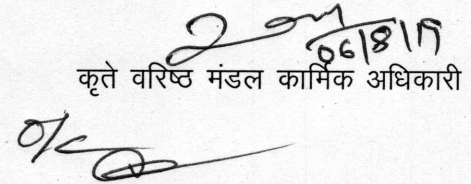 06/8/19
कृते वरिष्ठ मंडल कार्मिक अधिकारी
O/C